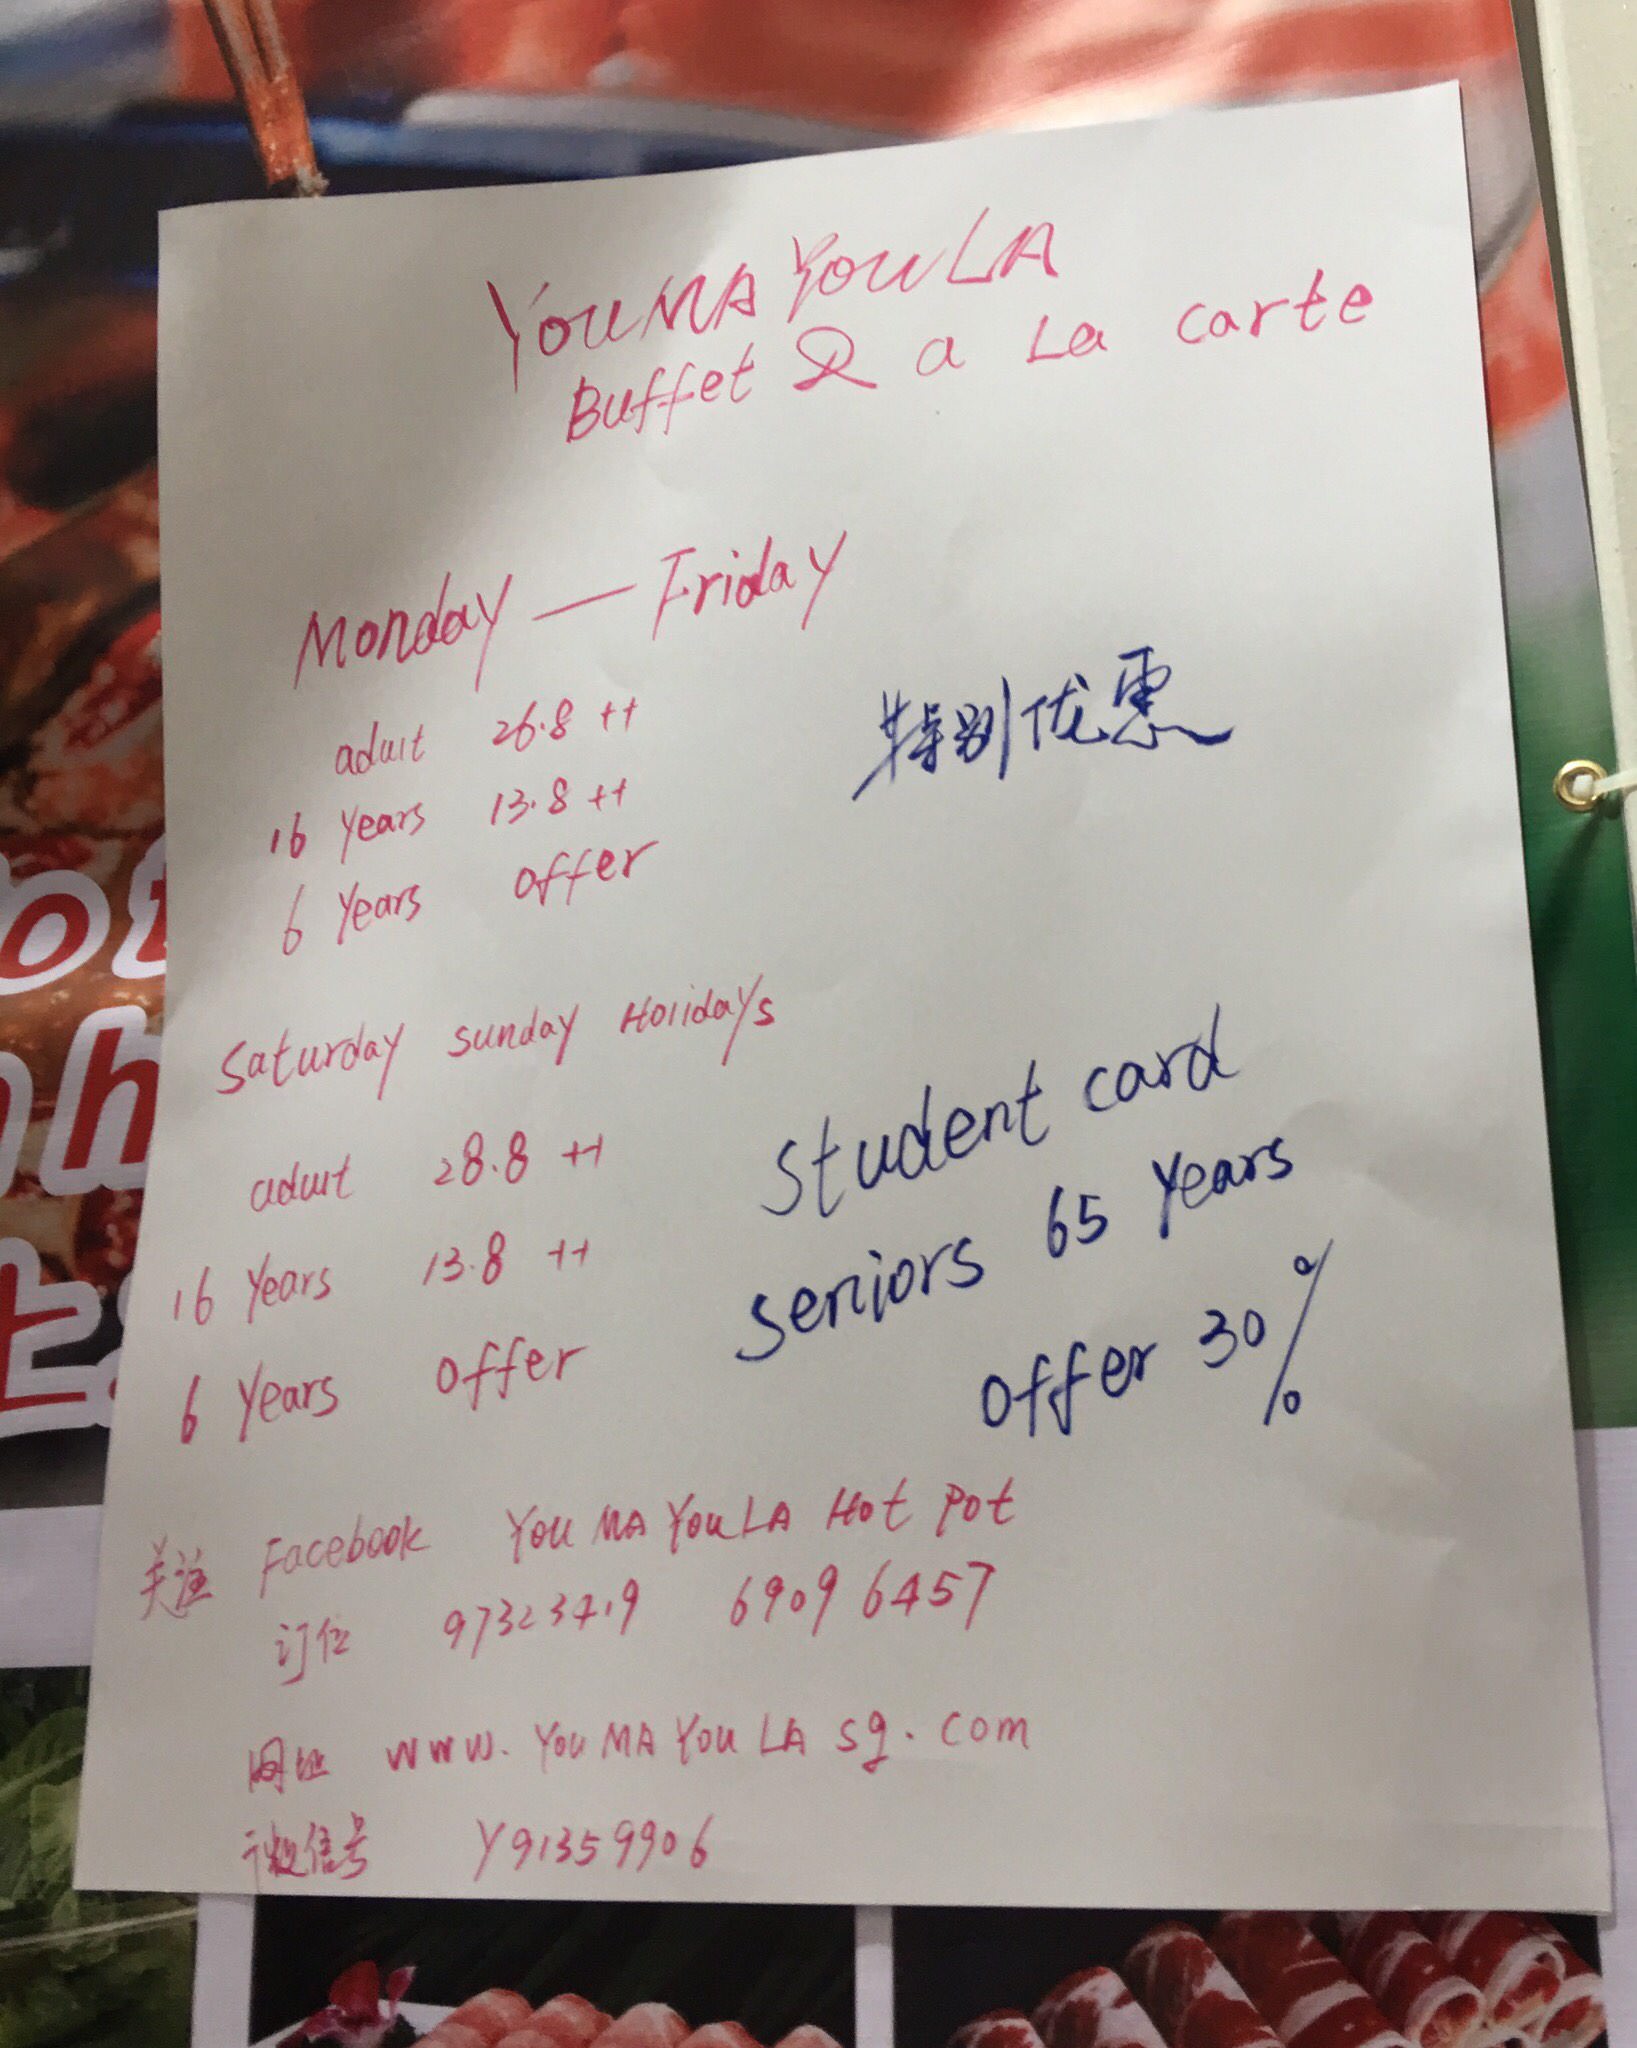 YOUMAYOULA
Buffet & a La carte
Monday — Friday
aduit 26.8 ++
16 Years 13.8 ++
6 Years offer
特别优惠
Saturday Sunday Holidays
aduit 28.8 ++
16 Years 13.8 ++
6 Years offer
Student card
Seniors 65 Years
offer 30%
关注 Facebook YOU MA YOU LA Hot Pot
订位 97323419 6909 6457
网址 www.YOUMAYOULAsg.com
微信号 Y91359906